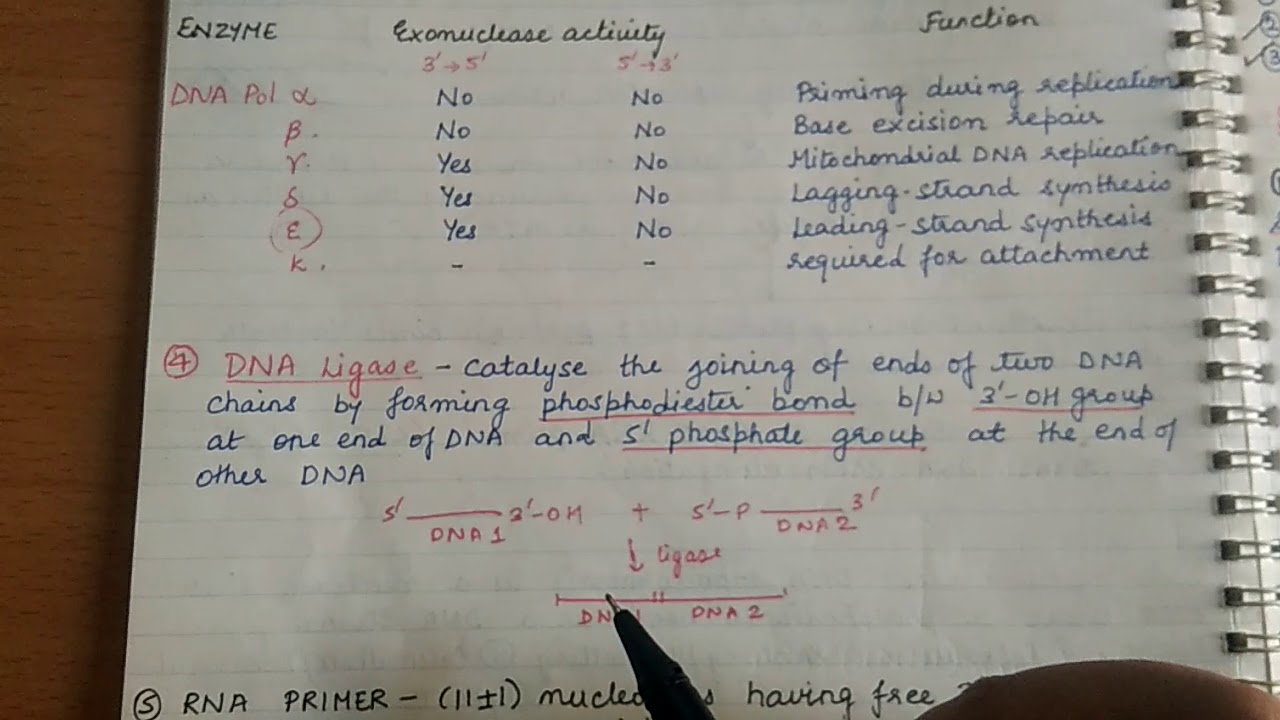 ENZYME Exonuclease activity Function
3'→5' 5'→3'
DNA Pol α No No Priming during replication
β. No No Base excision repair
γ. Yes No Mitochondrial DNA replication
δ Yes No Lagging-strand synthesis
ε Yes No Leading-strand synthesis
K. - - required for attachment
④ DNA Ligase - catalyse the joining of ends of two DNA
chains by forming phosphodiester bond b/w 3'-OH group
at one end of DNA and 5' phosphate group at the end of
other DNA
5' 3'-OH + 5'-P 3'
DNA 1 DNA 2
↓ ligase
DNA 2
⑤ RNA PRIMER - (11±1) having free